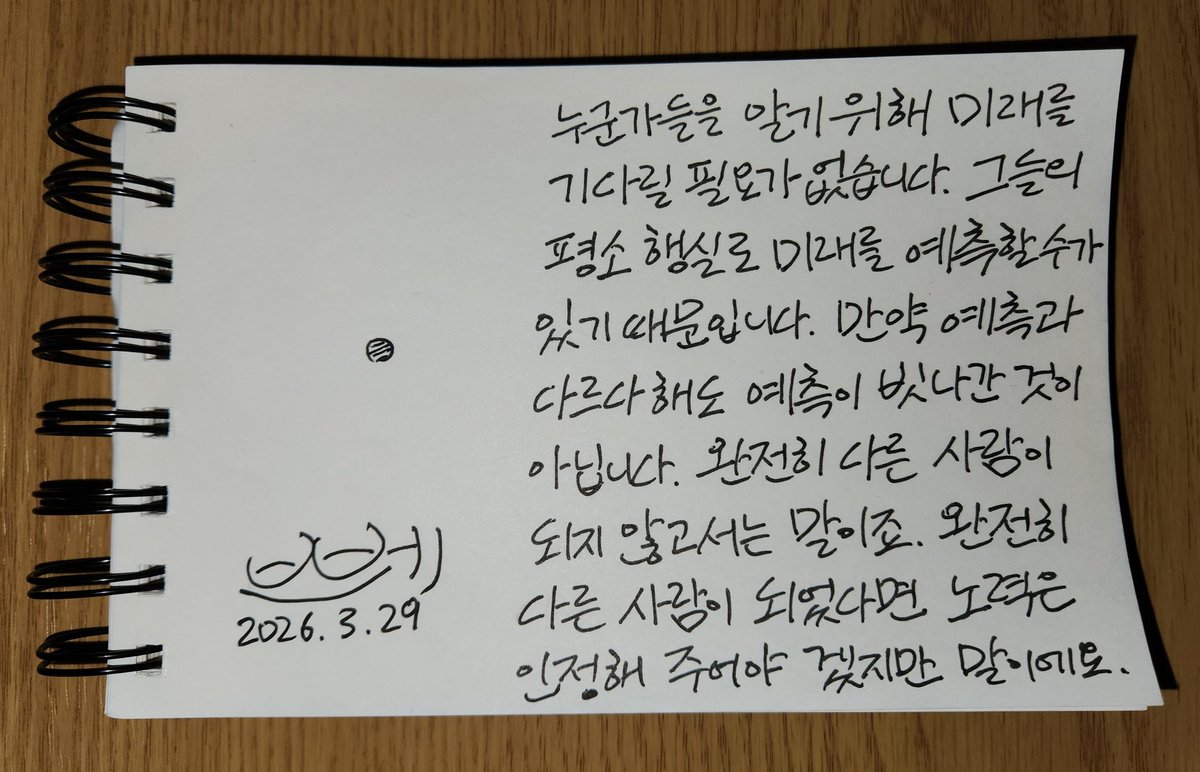 누군가들을 알기 위해 미래를
기다릴 필요가 없습니다. 그들의
평소 행실로 미래를 예측할 수가
있기 때문입니다. 만약 예측과
다르다 해도 예측이 빗나간 것이
아닙니다. 완전히 다른 사람이
되지 않고서는 말이죠. 완전히
다른 사람이 되었다면 노력은
인정해 주어야 겠지만 말이에요.
2026.3.29